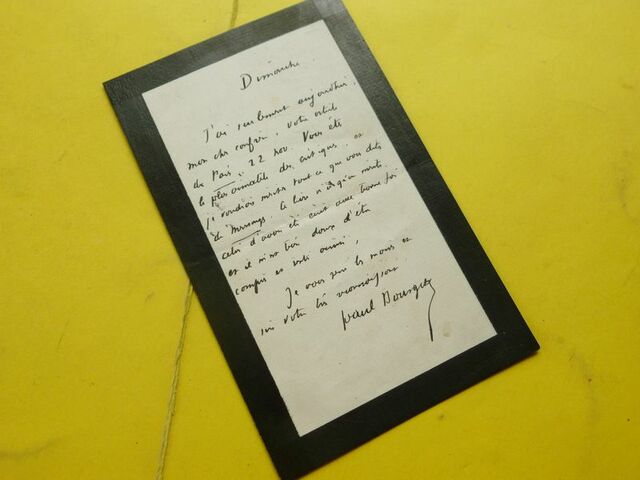 Dimanche
J'ai seulement aujourd'hui,
mon cher confrère, votre article
de Paris, 22 nov. Vous êtes
le plus aimable des critiques, et
je voudrais mériter tout ce que vous dites
de Mensonges. Ce livre n'a qu'un mérite
celui d'avoir été écrit avec bonne foi
et il m'est bien doux d'être
compris et senti ainsi,
Je vous serre les mains et
suis votre très reconnaissant
Paul Bourget